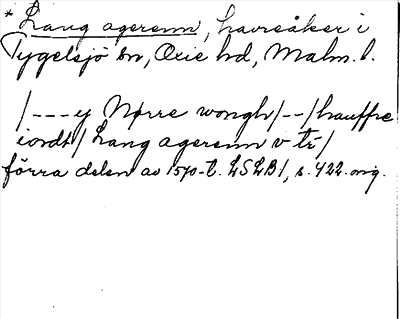 * Lang agerenn, havreåker i
Tygelsjö sn, Oxie hd, Malm. l.
/---y Nørre wongh/--/hauffre
iordt/ Lang agerenn v tr/
förra delen av 1570-t. LSLB1, s. 422. orig.